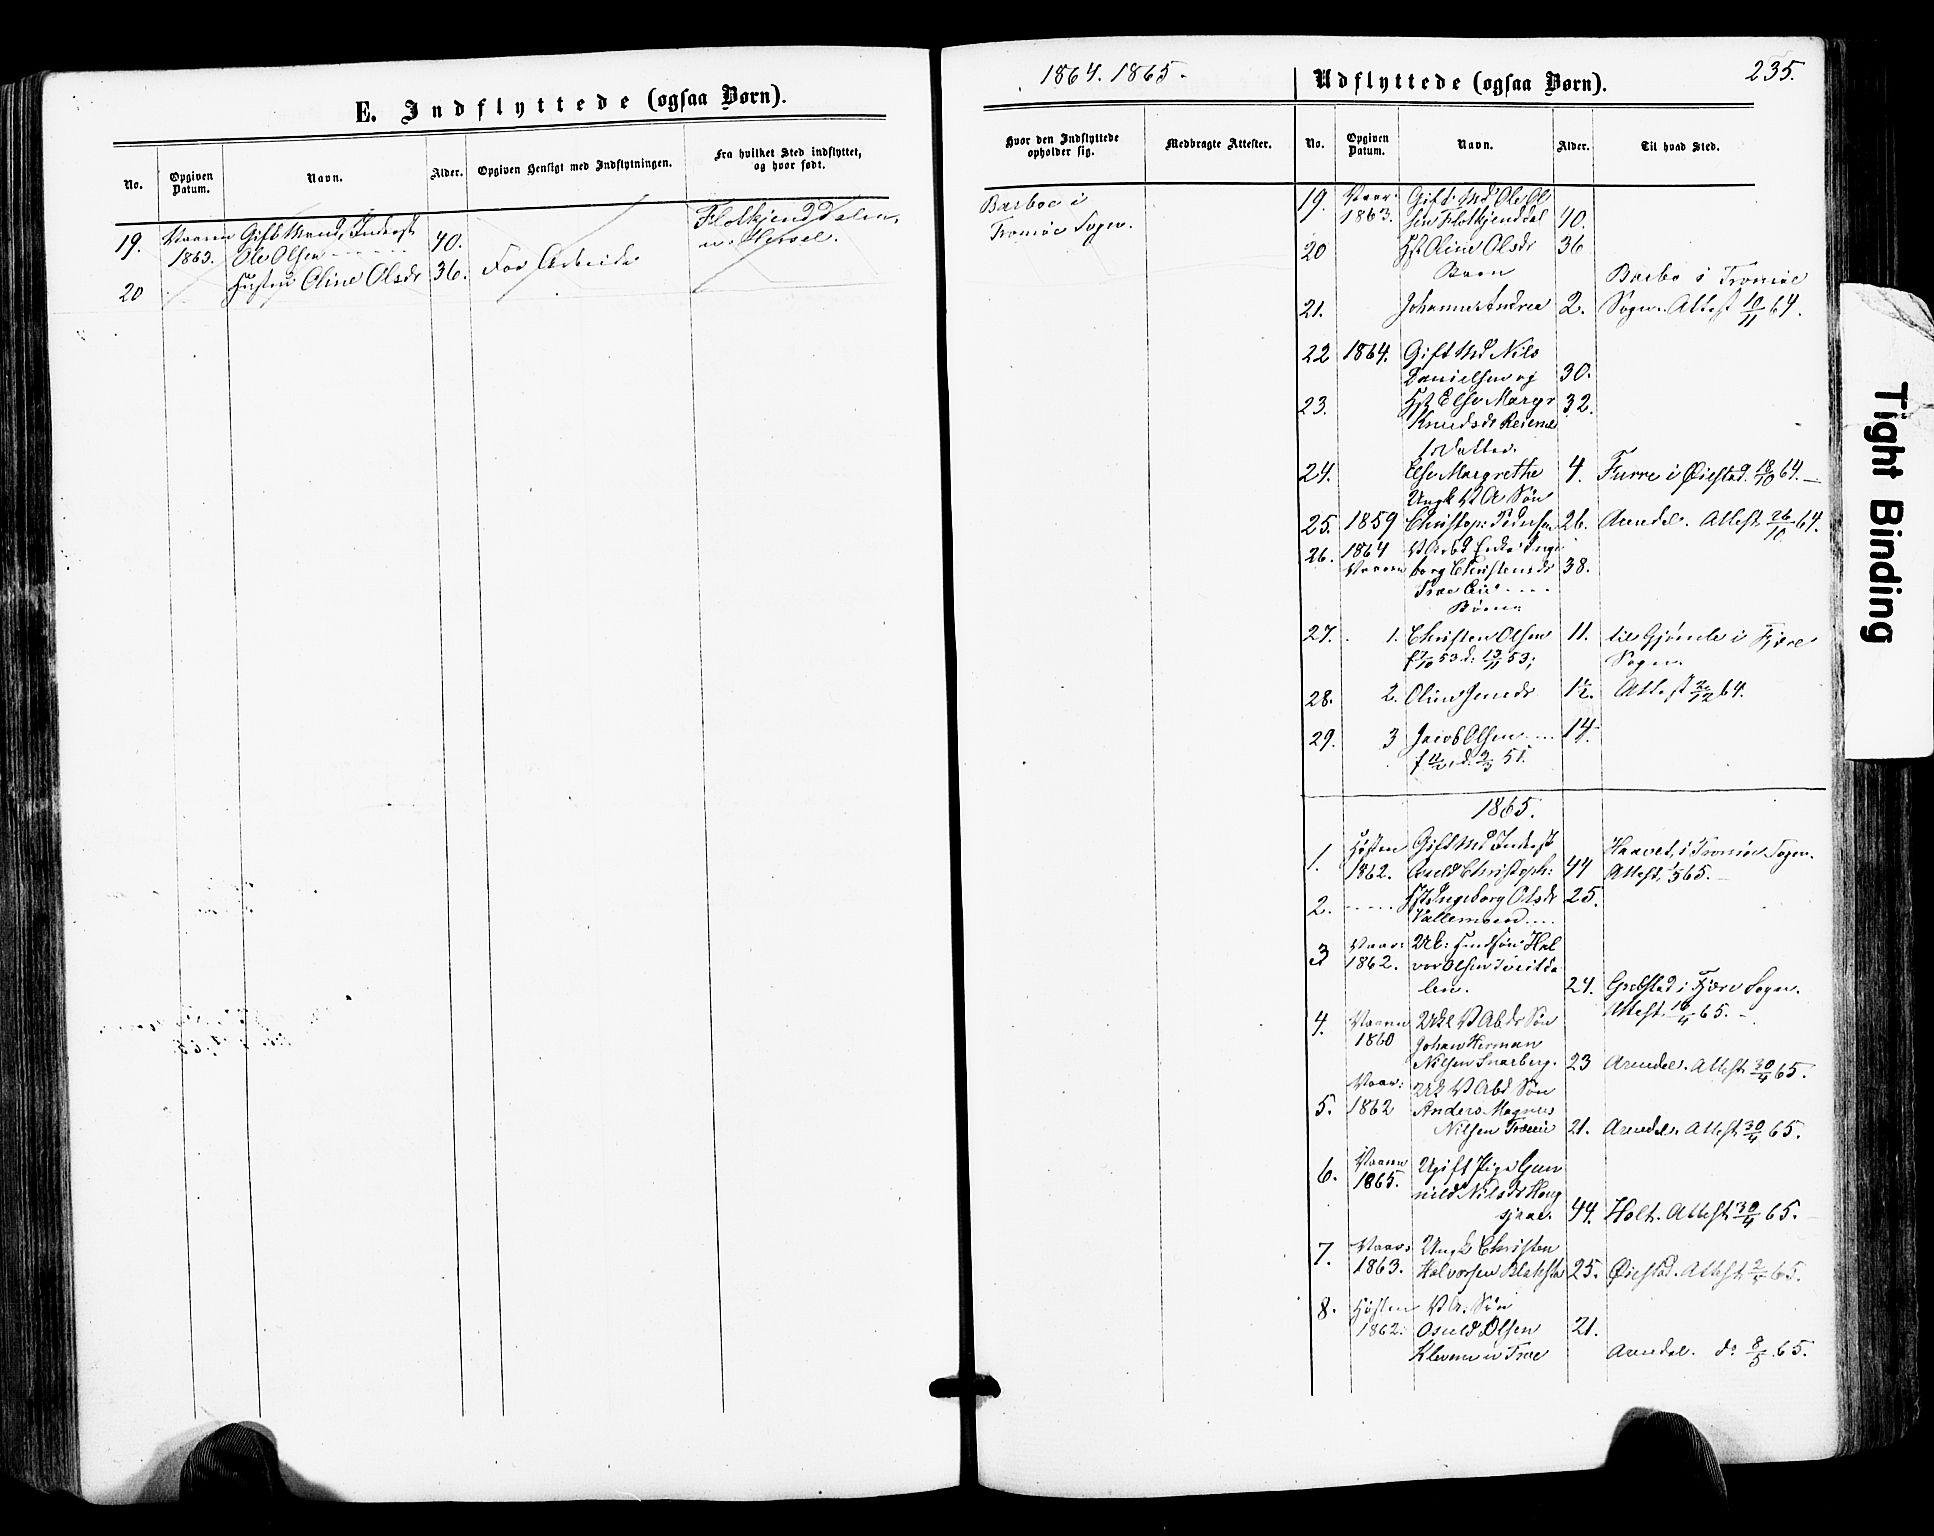 E. Indflyttede (ogsaa Børn).
No.
Opgiven Datum.
Navn.
Alder.
Opgiven Hensigt med Indflytningen.
Fra hvilket Sted indflyttet, og hvor født.
19. Vaaren Gift Mand, Inderst 40.
1863. Ole Olsen
20 Hustru Oline Olsdr 36. For Arbeide
1864. 1865.
Udflyttede (ogsaa Børn).
235.
Hvor den Indflyttede opholder sig.
Medbragte Attester.
No.
Opgiven Datum.
Navn.
Alder.
Til hvad Sted.
Barboe i
Tromøe Sogn.
19. Vaar: Gift Md Ole Ol
1863. sen Flotkjenddal 40.
20 Hst Oline Olsdr 36
Barn
Barbo i Tromøe
21. Johanne Andrea 2. Sogn. Attest 10/11 64.
22 1864. Gift Md Nils
Danielsen og 30.
23. Hst Else Margr 32.
Knudsdr
1 Datter.
24. Else Margrethe 4. Furre i Øiestad. 18/10 64.
Ungk V A Søn
25. 1859 Christop: Pedersen 26. Arendal. Attest 26/10 64.
26. 1864 Enke Inge
Vaaren borg Christensdr 38.
Børn
27. 1. Christen Olsen 11. til Gjømle i Fjære
53 d: 13/11 53; Sogn.
28. 2. Oline Jensdr 1½. Attest 2/12 64.
29. 3 Jacob Olsen 14.
51.
1865.
1. Høsten Gift Md Inderst Haavet i Tromøe Sogn.
1862. Christoph: 44 Attest 65.
2. Hst Ingeborg Olsdr 25.
Vallemoen
3 Vaar: Hal
1862. vor Olsen Tveitda
len. 24. Grefstad i Fjære Sogn.
Attest 16/4 65.
4. Vaaren V Abdr Søn
1860 Johan Herman
Nilsen Snarberg. 23 Arendal. Attest 30/4 65.
Vaar: V Abd Søn
5. 1862 Anders Magnus
Nilsen 21. Arendal. Attest 30/4 65.
6. Vaaren Ugift Pige Gun
1865. nild Nilsdr Houg
44. Holt. Attest 30/4 65.
7. Vaar: Ungk Christen
1863. Halvorsen Blakstad 25. Øiestad. Attest 65.
8. Høsten V A. Søn
1862: Osuld Olsen 21.
Kleven Arendal. do 8/5 65.
Tight Binding